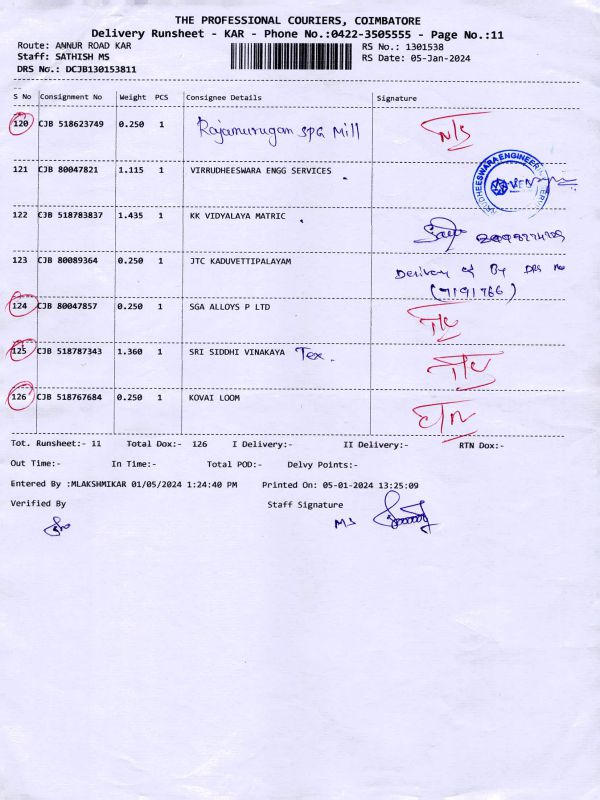 THE PROFESSIONAL COURIERS, COIMBATORE
Delivery Runsheet - KAR - Phone No.:0422-3505555 - Page No.:11
Route: ANNUR ROAD KAR RS No.: 1301538
Staff: SATHISH MS RS Date: 05-Jan-2024
DRS No.: DCJB130153811
S No Consignment No Weight PCS Consignee Details Signature
120 CJB 518623749 0.250 1 Rajamurugan SPG Mill N/S
121 CJB 80047821 1.115 1 VIRRUDHEESWARA ENGG SERVICES
122 CJB 518783837 1.435 1 KK VIDYALAYA MATRIC
123 CJB 80089364 0.250 1 JTC KADUVETTIPALAYAM Delivery By DRS No
(7191766)
124 CJB 80047857 0.250 1 SGA ALLOYS P LTD
125 CJB 518787343 1.360 1 SRI SIDDHI VINAKAYA Tex.
126 CJB 518767684 0.250 1 KOVAI LOOM
Tot. Runsheet:- 11 Total Dox:- 126 I Delivery:- II Delivery:- RTN Dox:-
Out Time:- In Time:- Total POD:- Delvy Points:-
Entered By :MLAKSHMIKAR 01/05/2024 1:24:40 PM Printed On: 05-01-2024 13:25:09
Verified By Staff Signature
MS